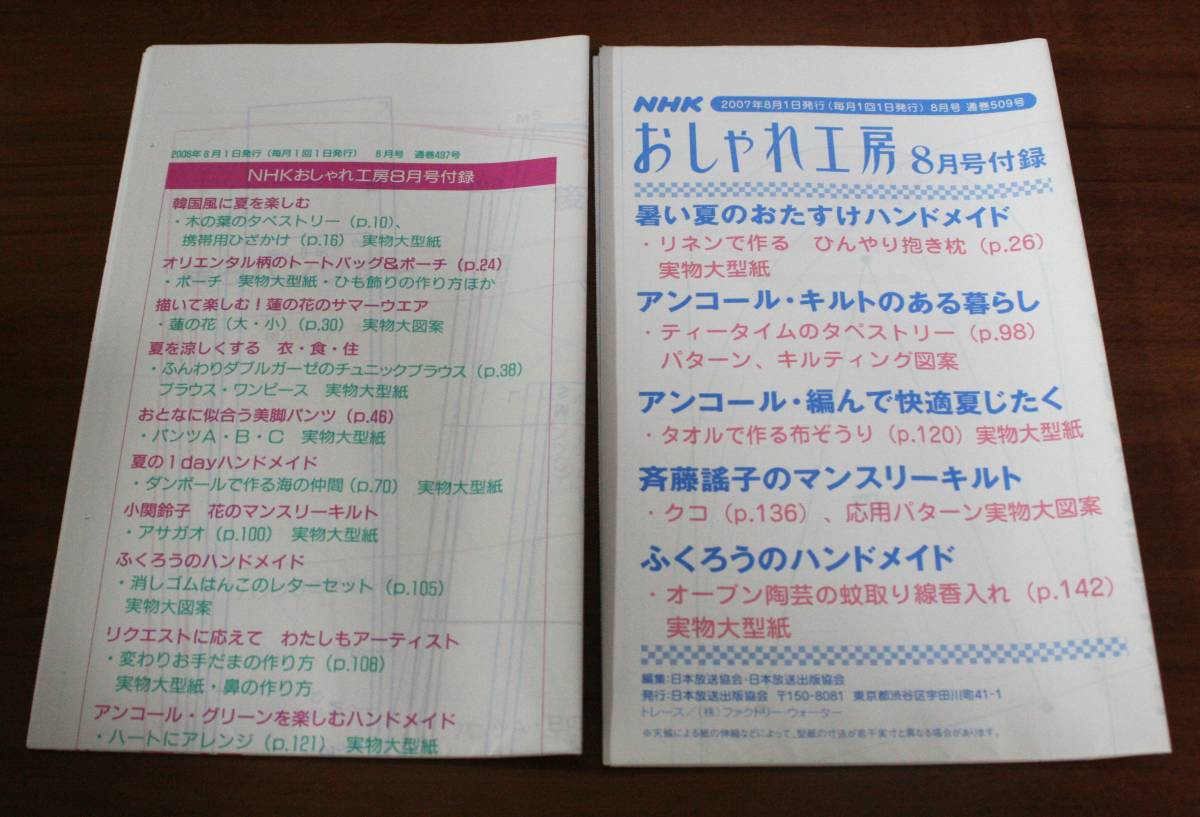 2006年8月1日発行（毎月1回1日発行） 8月号 通巻497号
NHKおしゃれ工房8月号付録
韓国風に夏を楽しむ
・木の葉のタペストリー（p.10）、
携帯用ひざかけ（p.16） 実物大型紙
オリエンタル柄のトートバッグ&ポーチ（p.24）
・ポーチ 実物大型紙・ひも飾りの作り方ほか
描いて楽しむ！蓮の花のサマーウエア
・蓮の花（大・小）（p.30） 実物大図案
夏を涼しくする 衣・食・住
・ふんわりダブルガーゼのチュニックブラウス（p.38）
ブラウス・ワンピース 実物大型紙
おとなに似合う美脚パンツ（p.46）
・パンツA・B・C 実物大型紙
夏の1dayハンドメイド
・ダンボールで作る海の仲間（p.70） 実物大型紙
小関鈴子 花のマンスリーキルト
・アサガオ（p.100） 実物大型紙
ふくろうのハンドメイド
・消しゴムはんこのレターセット（p.105）
実物大図案
リクエストに応えて わたしもアーティスト
・変わりお手だまの作り方（p.108）
実物大型紙・鼻の作り方
アンコール・グリーンを楽しむハンドメイド
・ハートにアレンジ（p.121） 実物大型紙
NHK 2007年8月1日発行（毎月1回1日発行）8月号 通巻509号
おしゃれ工房 8月号付録
暑い夏のおたすけハンドメイド
・リネンで作る ひんやり抱き枕（p.26）
実物大型紙
アンコール・キルトのある暮らし
・ティータイムのタペストリー（p.98）
パターン、キルティング図案
アンコール・編んで快適夏じたく
・タオルで作る布ぞうり（p.120）実物大型紙
斉藤謠子のマンスリーキルト
・クコ（p.136）、応用パターン実物大図案
ふくろうのハンドメイド
・オーブン陶芸の蚊取り線香入れ（p.142）
実物大型紙
編集：日本放送協会・日本放送出版協会
発行：日本放送出版協会 〒150-8081 東京都渋谷区宇田川町41-1
トレース／（株）ファクトリー・ウォーター
※天候による紙の伸縮などによって、型紙の寸法が若干実寸と異なる場合があります。